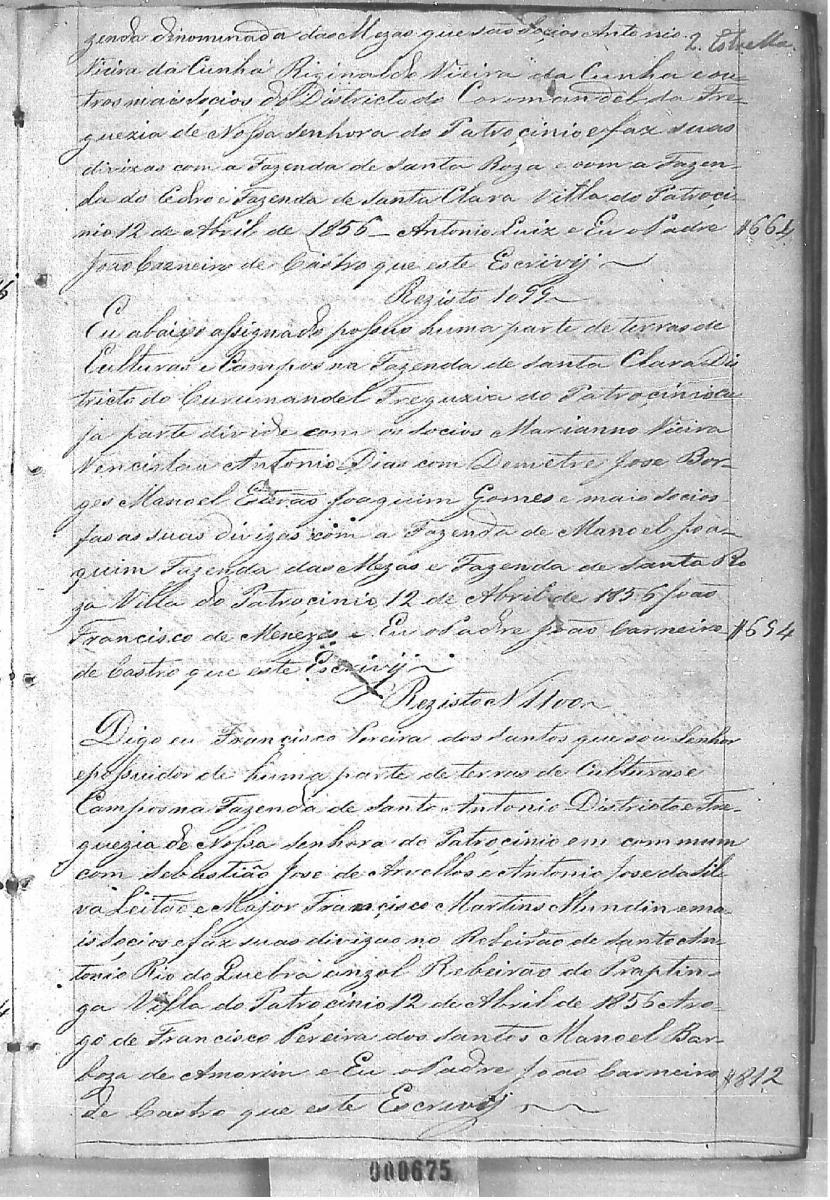 zenda dinominada das Mezas que são Socios Antonio
2. Estrella
Vieira da Cunha Riginaldo Vieira da Cunha e ou-
tros mais Socios do Districto do Coromandel da Fre-
guezia de Nossa Senhora do Patrocinio e faz suas
divizas com a Fazenda de Santa Roza e com a Fazen-
da do Cedro e Fazenda de Santa Clara Villa do Patroci-
nio 12 de Abril de 1856 - Antonio Luiz e Eu o Padre #664
João Carneiro de Castro que este Escrivij
Rezisto 1099
Eu abaixo assignado possuo huma parte de terras de
Culturas e Campos na Fazenda de Santa Clara Dis
tricto do Curumandel Freguzia do Patrocinio cu
ja parte divide com os socios Marianno Vieira
Vencislau Antonio Dias com Demetre Jose Bor-
ges Manoel Estevão Joaquim Gomes e mais socios
fas as suas divizas com a Fazenda de Manoel Joa-
quim Fazenda das Mezas e Fazenda de Santa Ro
za Villa do Patrocinio 12 de Abril de 1856 João
Francisco de Menezes e Eu o Padre João Carneiro #654
de Castro que este Escrivij
Rezisto N 1100
Digo eu Francisco Pereira dos Santos que sou Senhor
e possuidor de huma parte de terras de Culturas e
Campos na Fazenda de Santo Antonio Districto e Fre-
guezia de Nossa Senhora do Patrocinio em commum
com Sebastião Jose de Arvellos e Antonio Jose da Sil
va Leitão e Major Francisco Martins Mundin e ma
is Socios e faz suas divizas no Rebeirão de Santo An
tonio Rio do Quebra anzol Rebeirão do Praptin-
ga Villa do Patrocinio 12 de Abril de 1856 Aro-
go de Francisco Pereira dos Santos Manoel Bar-
boza de Amorim e Eu o Padre João Carneiro #812
de Castro que este Escrivij
000675